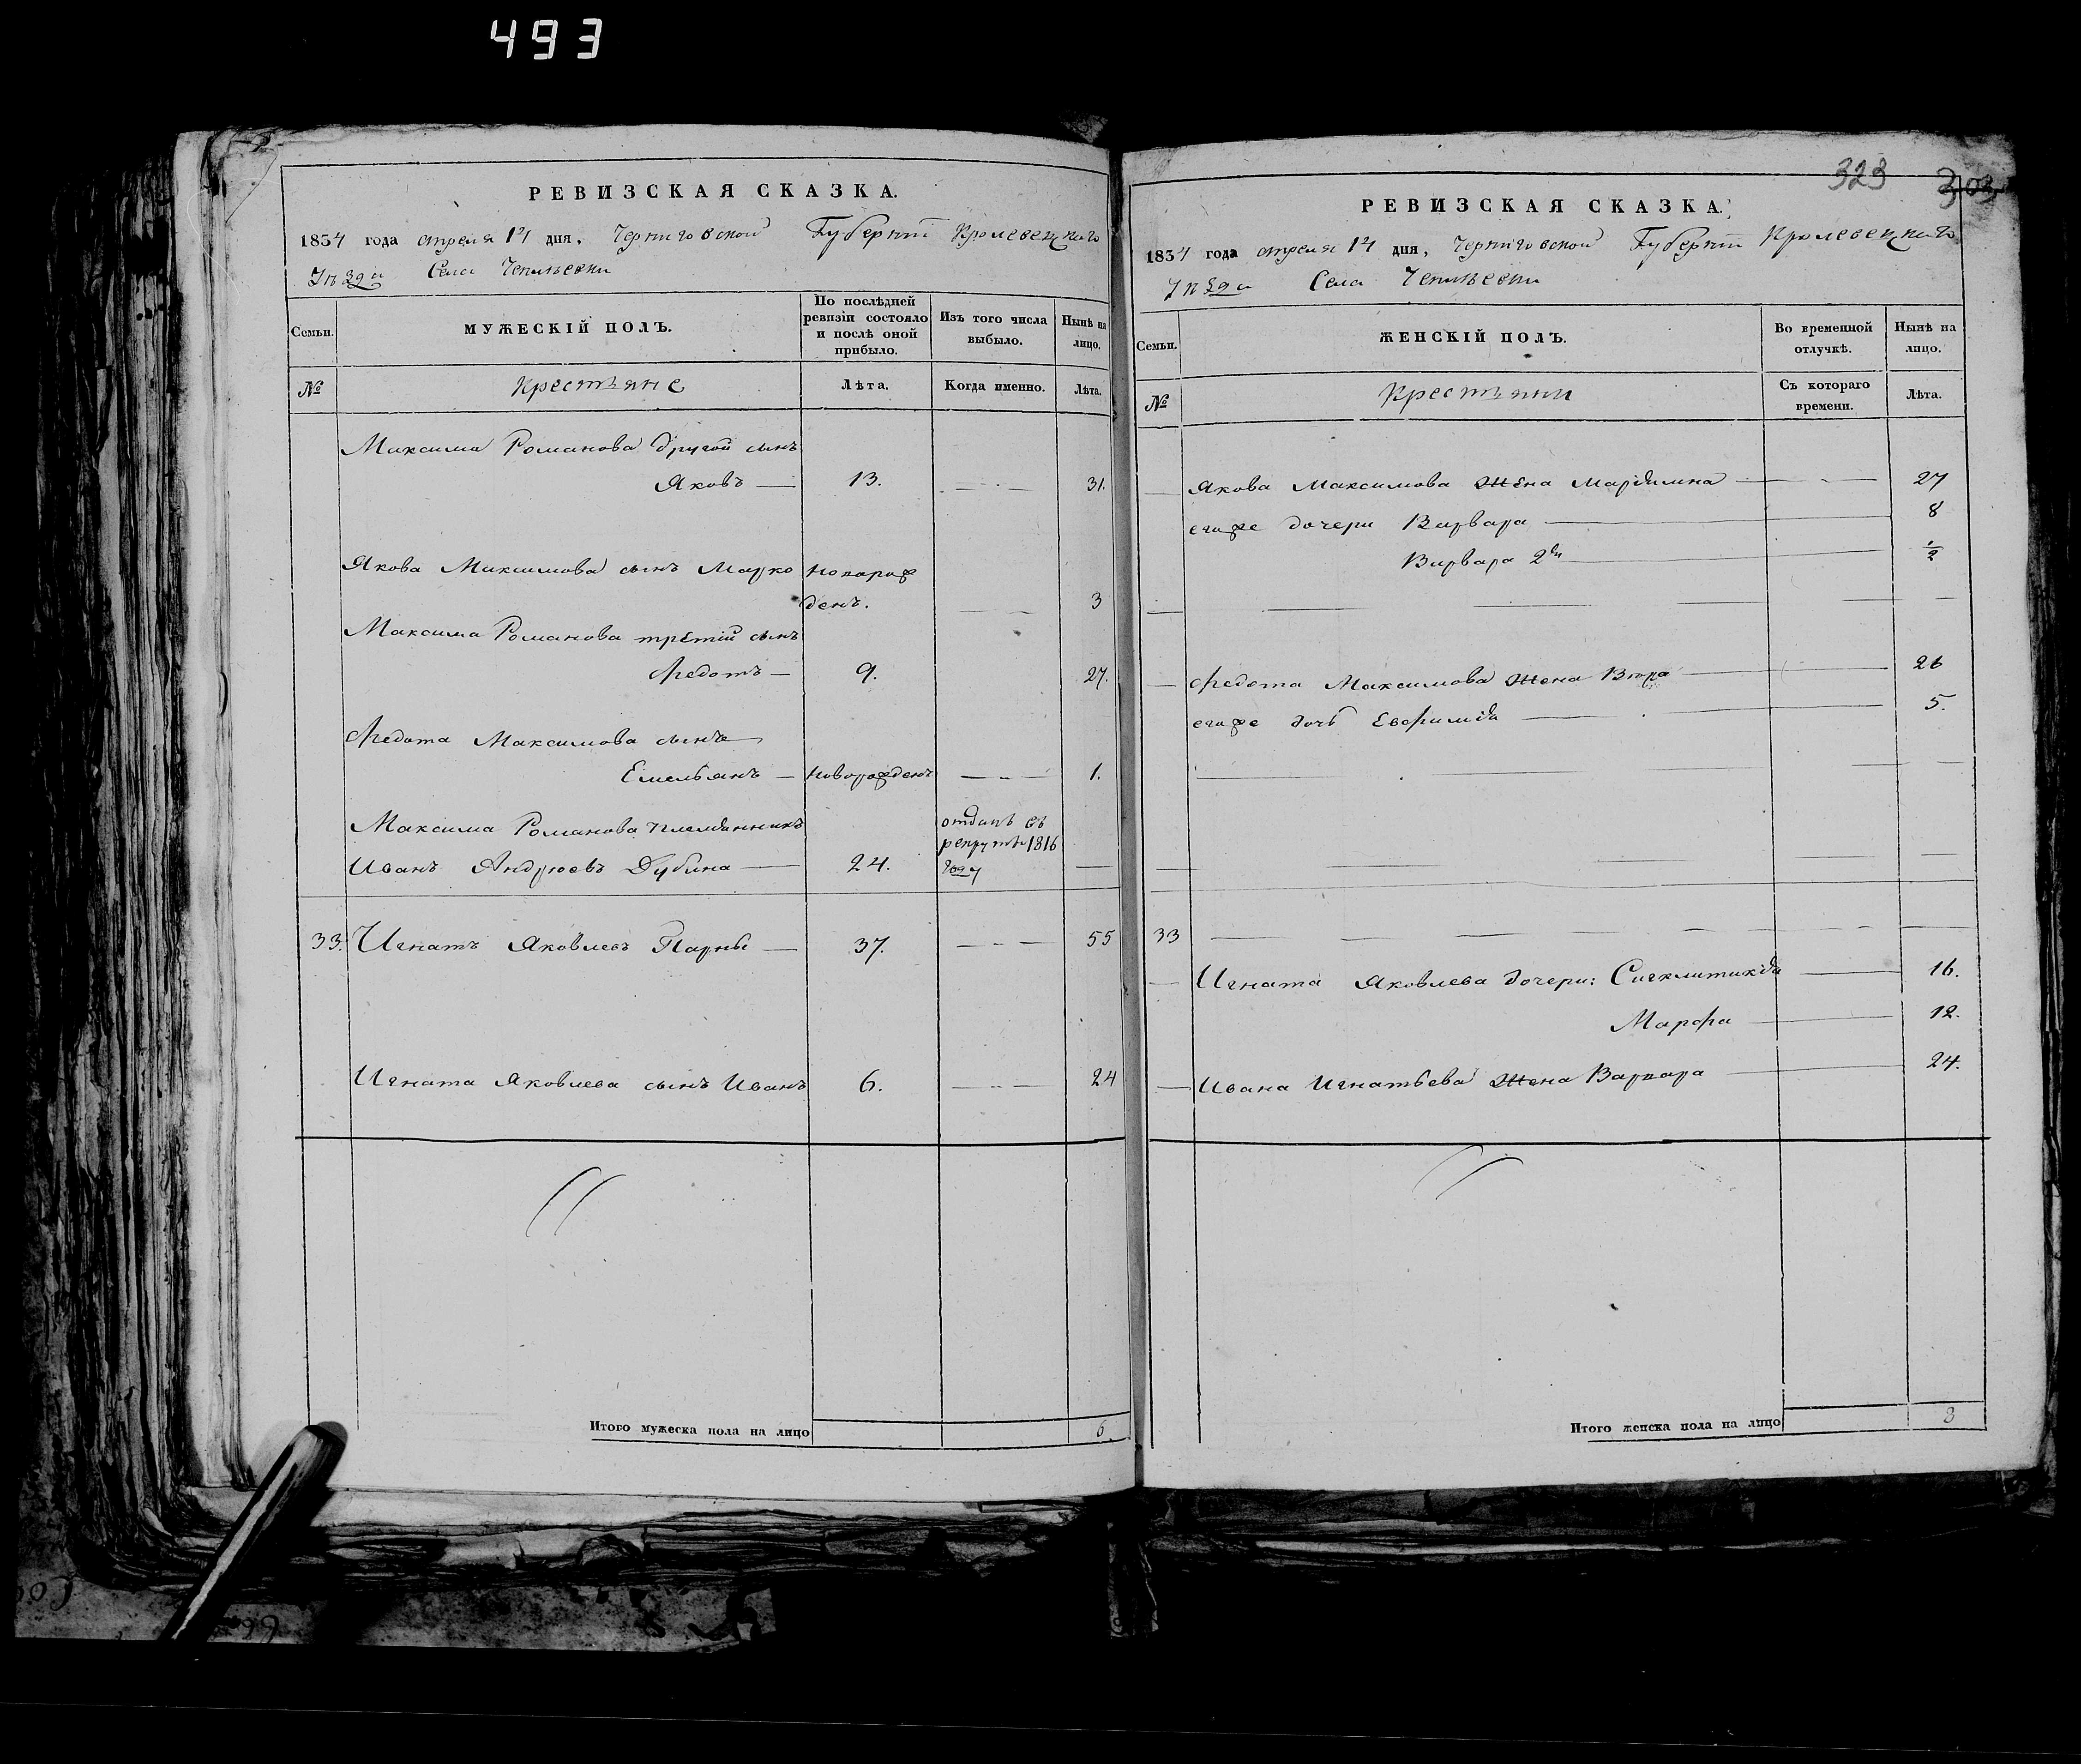 493
РЕВИЗСКАЯ СКАЗКА.
1834 года апреля 14 дня, Черниговской Губернии Кролевецкаго
Уезда Села
Семьи.
МУЖЕСКІЙ ПОЛЪ.
По послѣдней ревизіи состояло и послѣ оной прибыло.
Изъ того числа выбыло.
Нынѣ на лицо.
№
Крестьяне
Лѣта.
Когда именно.
Лѣта.
Максима Романова другой сынъ
Яковъ 13. 31.
Якова Максимова сынъ Марко новорож
денъ. 3
Максима Романова третій сынъ
Федотъ 9. 27.
Федота Максимова сынъ
Емельянъ новорожденъ 1.
Максима Романова племянникъ отданъ въ
рекруты 1816
Иванъ Андреевъ Дубина 24. году
33. Игнатъ Яковлевъ 37. 55
Игната Яковлева сынъ Иванъ 6. 24
Итого мужеска пола на лицо 6.
323
303
РЕВИЗСКАЯ СКАЗКА.
1834 года апреля 14 дня, Черниговской Губернии Кролевецкаго
Уезда Села
Семьи.
ЖЕНСКІЙ ПОЛЪ.
Во временной отлучкѣ.
Нынѣ на лицо.
№
Крестьяни
Съ котораго времени.
Лѣта.
Якова Максимова жена 27
егоже дочери Варвара 8
Варвара 2я ½
Федота Максимова жена 26
егоже дочь Евфимія 5.
33
Игната Яковлева дочери: Сигклитикія 16.
Марфа 12.
Ивана Игнатьева жена Варвара 24.
Итого женска пола на лицо 8